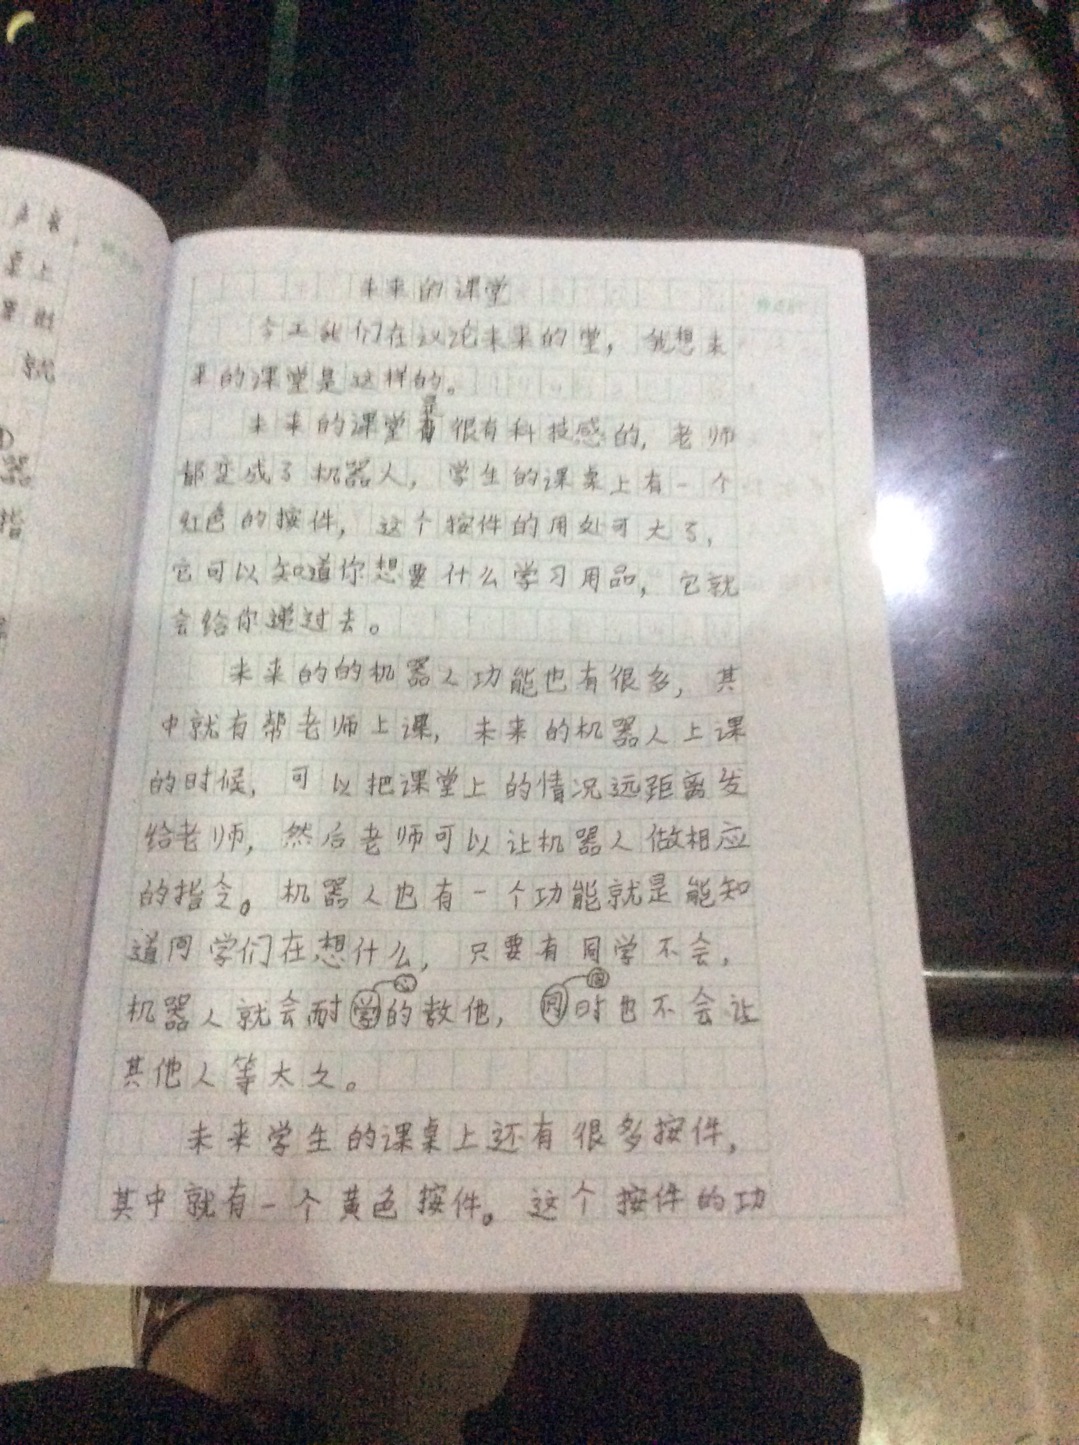 声长
桌上
等时
就
器
指
未来的课堂
今工我们在议论未来的堂，我想未
来的课堂是这样的。
未来的课堂是很有科技感的，老师
都变成了机器人，学生的课桌上有一个
红色的按件，这个按件的用处可大了，
它可以知道你想要什么学习用品，它就
会给你递过去。
未来的的机器人功能也有很多，其
中就有帮老师上课，未来的机器人上课
的时候，可以把课堂上的情况远距离发
给老师，然后老师可以让机器人做相应
的指令。机器人也有一个功能就是能知
道同学们在想什么，只要有同学不会，
心 同
机器人就会耐学的教他，同时也不会让
其他人等太久。
未来学生的课桌上还有很多按件，
其中就有一个黄色按件。这个按件的功